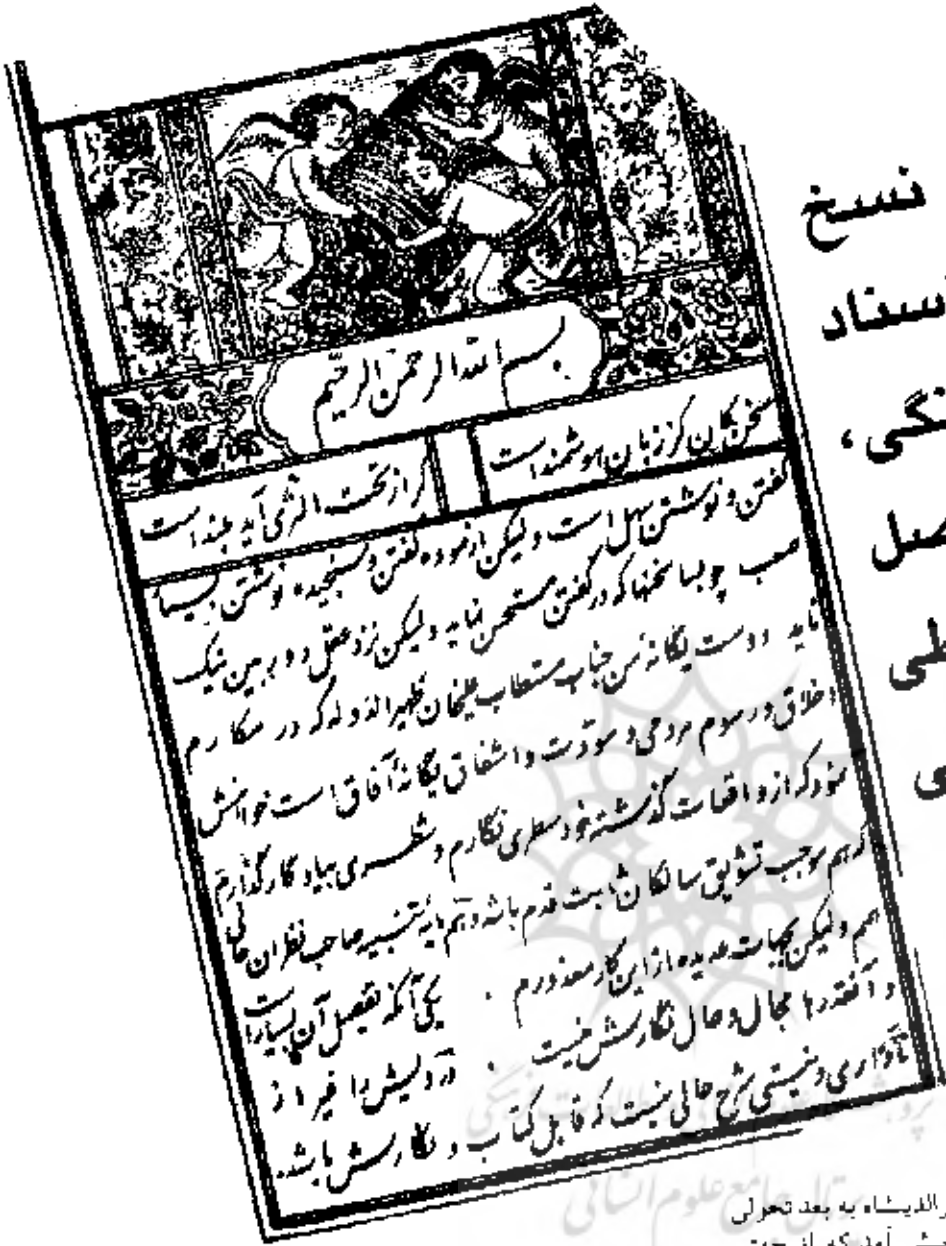 نسخ
سناد
نگی،
صل
طی
ی
بسم الله الرحمن الرحیم
سخن کان از زبان هوشمند است
گر از تحت الثری آید بلند است
گفتن و نوشتن سهل است و لیکن آزموده گفتن و سنجیده نوشتن بسیار
صعب چو بسا سخنها که در گفتن مستحسن نماید و لیکن نزد عقل دوربین نیک
نماید دوست یگانه من جناب مستطاب علیخان ظهیرالدوله که در مکارم
اخلاق و رسوم مردمی و مودت و اشفاق یگانه آفاق است خواهش
نمود که از واقعات گذشته خود سطری نگارم و شطری بیادگار گذارم
که هم موجب تشویق سالکان ثابت قدم باشد و هم مایه تنبیه صاحب نظران
همم و لیکن بجهات عدیده از این کار معذورم . یکی آنکه تفصیل آن بسیار است
و آنقدرها مجال و حال نگارش نیست . درویش را غیر از
ناداری و نیستی شرح حالی نیست که قابل کتاب و نگارش باشد.
پژوهشگاه علوم انسانی و مطالعات فرهنگی
پرتال جامع علوم انسانی
الدیشاه به بعد تحولی